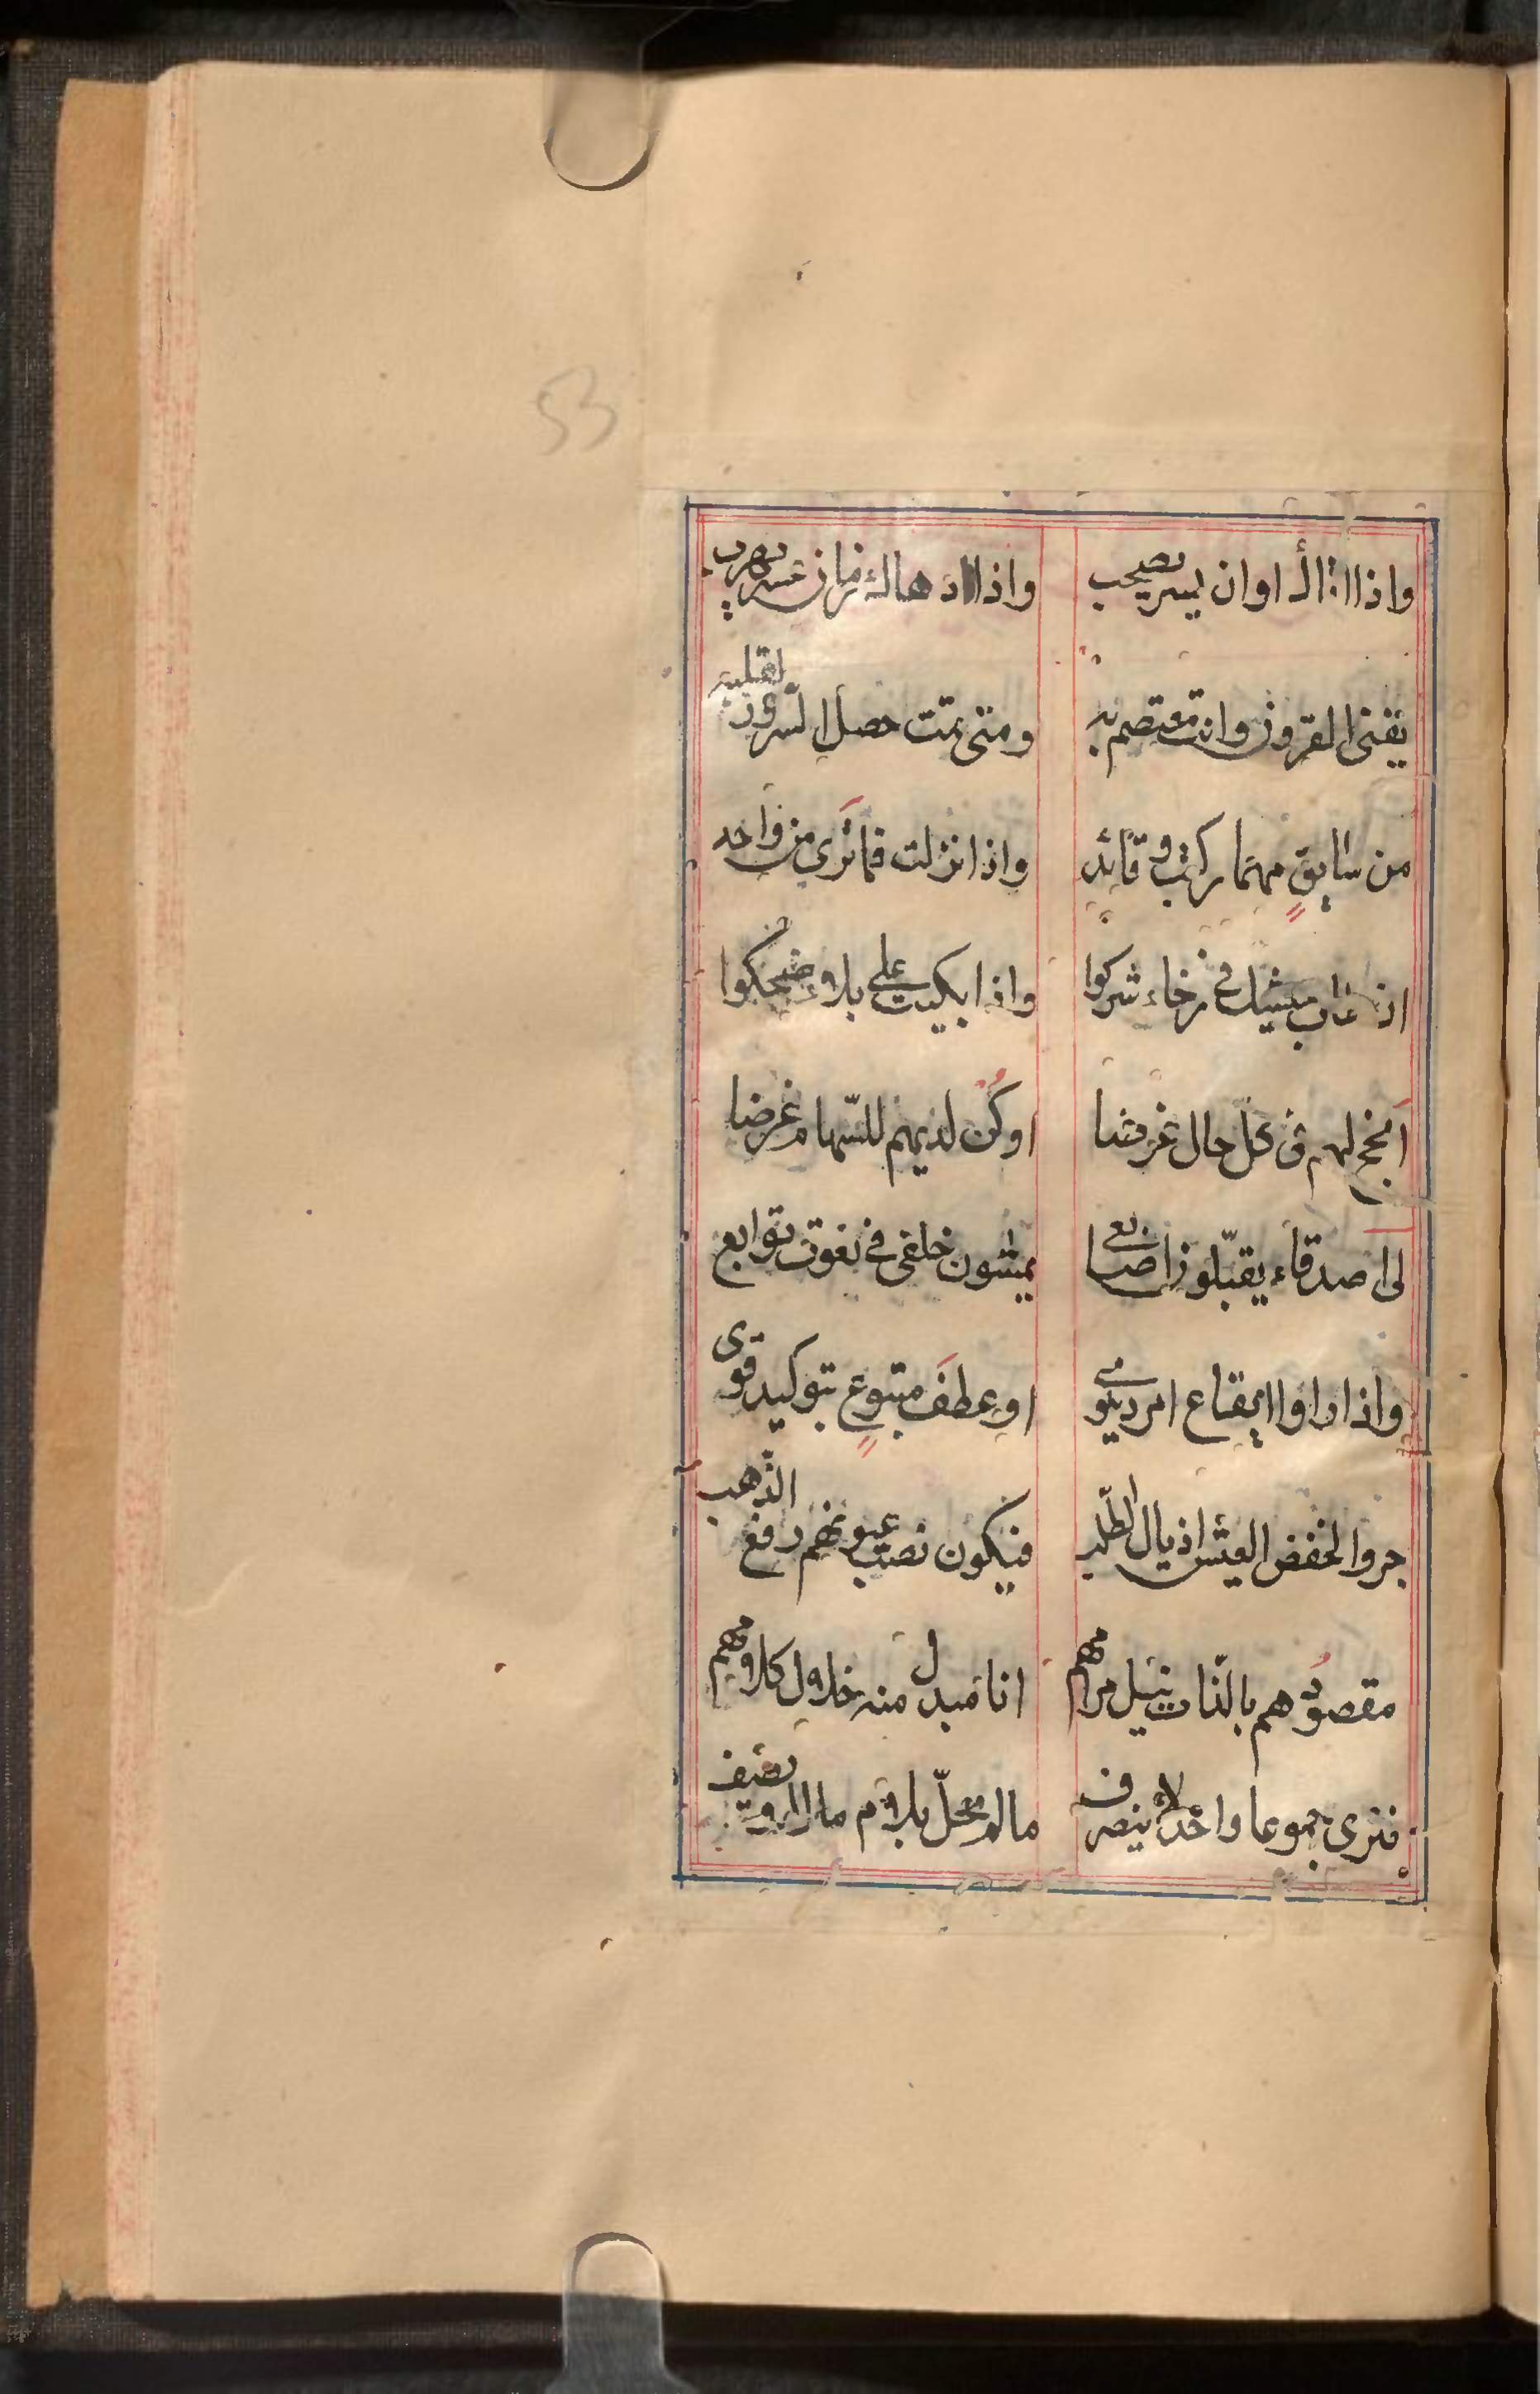 53
واذا اتاك اوان يسر يصحب واذا دهاك زمان عسر يهرب
يفنى القرون وانت معتصم به ومتى تمت حصل السرور لقلبه
من سابق مهما ركبت وقائد واذا نزلت فما ترى من واحد
اذ طاب عيشك في رخاء شركوا واذا بكيت على بلاء ضحكوا
لهم فى كل حال غرضا او كن لديهم للسّهام غرضا
لى اصدقاء يقبّلون اصابعى يمشون خلفى فى نعوت توابع
واذا راوا ايقاع امر دنيوى او عطفَ متبوعٍ بتوكيد قوى
جروا لخفض العيش اذيال الطلب فيكون نصب عيونهم رفع الذّهب
مقصودُهم بالذّات نيل مرامهم انا مبدل منه خلال كلامهم
فترى جموعا واحدا لا ينصرف مالم محلّ بلام مال